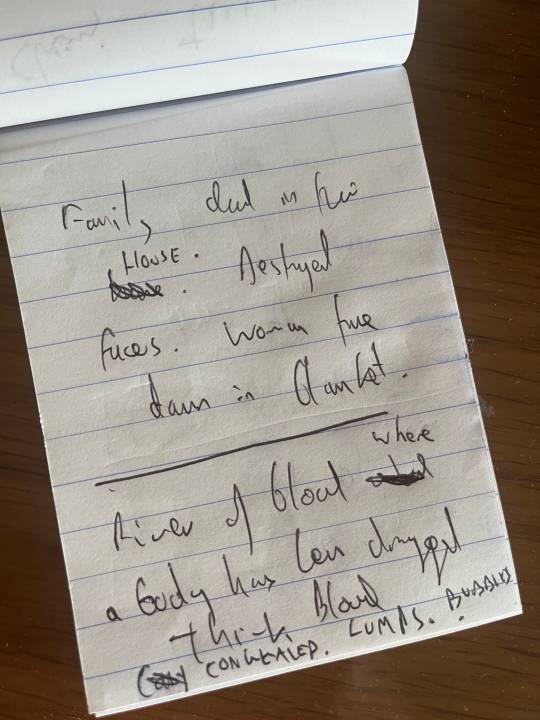 Family dead in their
HOUSE.
Destroyed
faces. Woman face
down in blanket.
where
River of blood
a body has been dragged
thick Blood
CONGEALED. LUMPS. BUBBLES